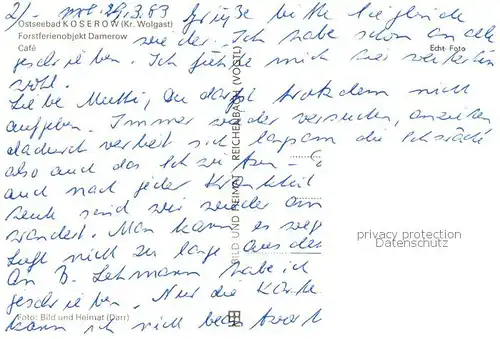 2/- mol 29.3.83 Grüße bitte
Ostseebad KOSEROW (Kr. Wolgast)
Forstferienobjekt Damerow
wieder. Ich habe schon an alle
Café
Echt Foto
geschrieben. Ich fühle mich hier weiterhin
wohl.
Liebe Mutti, Du darfst trotzdem nicht
aufgeben. Immer wieder versuchen,
dadurch verliert sich langsam die Schwäche
also auch das
auch nach jeder Krankheit
heute sind wir wieder
wandert. Man kann es
Luft nicht zu lange aus
An B. Lehmann habe ich
geschrieben. Nur die Karte
kann ich nicht
BILD UND HEIMAT REICHENBACH (VOGTL)
privacy protection
Datenschutz
Foto: Bild und Heimat (Darr)